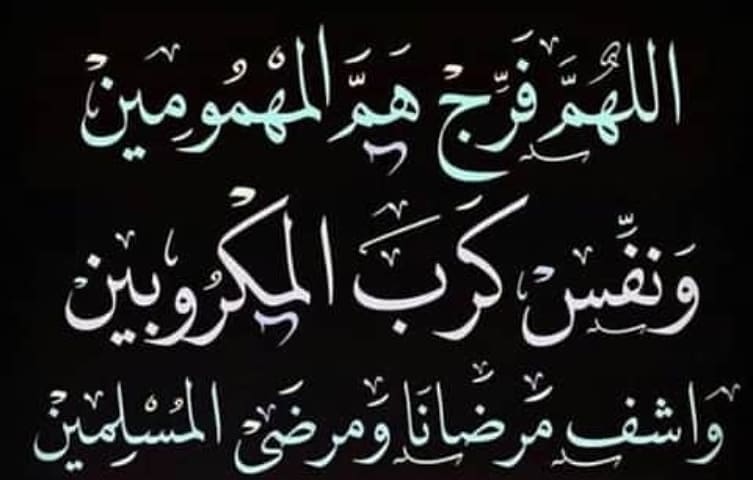 اللهُمَّ فَرِّجْ هَمَّ المَهْمُومِينْ
وَنَفِّسْ كَرَبَ المَكْرُوبينْ
وَاشفِ مَرضَانَا وَمرضَىْ المُسْلِمينْ